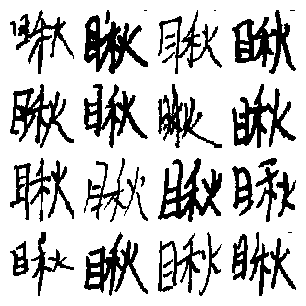 瞅瞅瞅瞅
瞅瞅瞅瞅
瞅瞅瞅瞅
瞅瞅瞅瞅